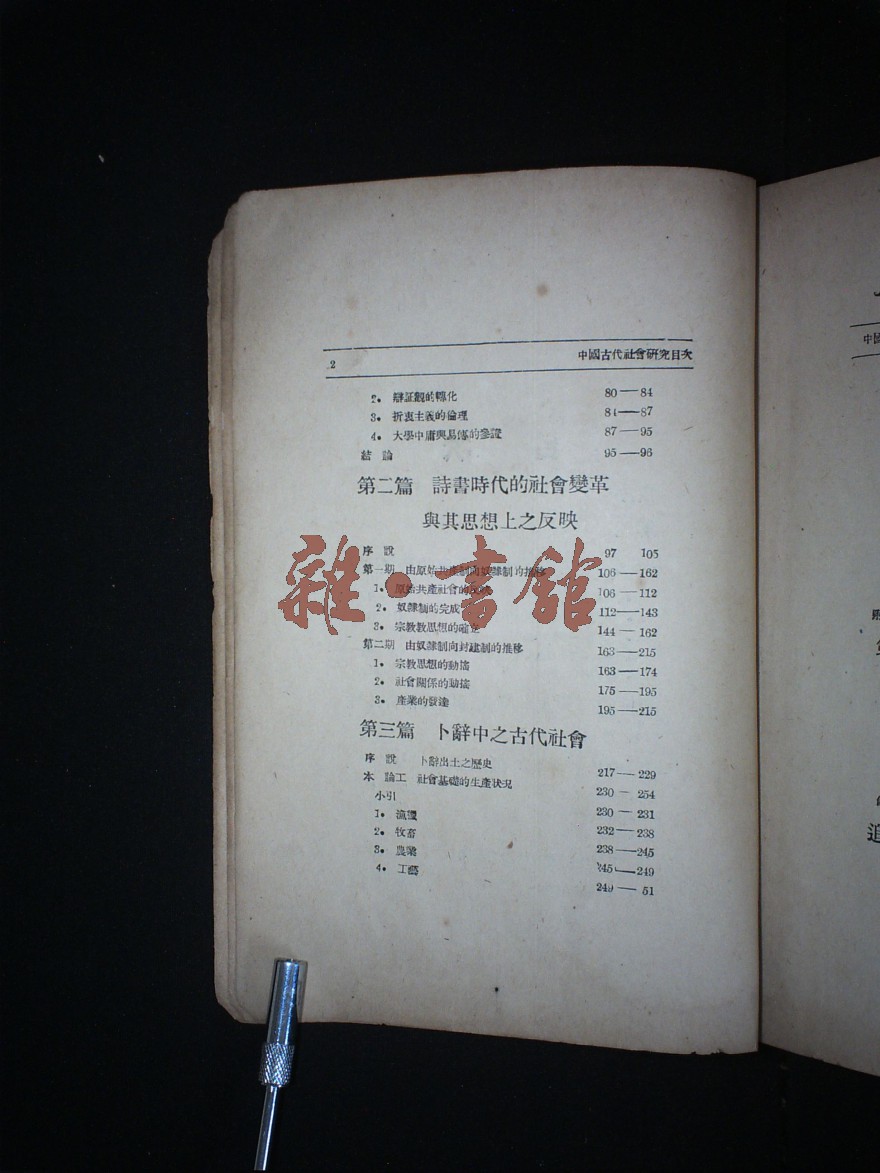 2 中國古代社會研究目次
2. 辯証觀的轉化 80——84
3. 折衷主義的倫理 84——87
4. 大學中庸與易傳的參證 87——95
結論 95——96
第二篇 詩書時代的社會變革
與其思想上之反映
序說 97 105
第一期 由原始共產制向奴隸制的推移 106——162
1. 原始共產社會的反映 106——112
2. 奴隸制的完成 112——143
3. 宗教思想的確立 144——162
第二期 由奴隸制向封建制的推移 163——215
1. 宗教思想的動搖 163——174
2. 社會關係的動搖 175——195
3. 產業的發達 195——215
第三篇 卜辭中之古代社會
序說 卜辭出土之歷史 217——229
本論工 社會基礎的生產狀況 230——254
小引 230——231
1. 漁獵 232——238
2. 牧畜 238——245
3. 農業 245——249
4. 工藝 249——51
雜·書館
中國
追